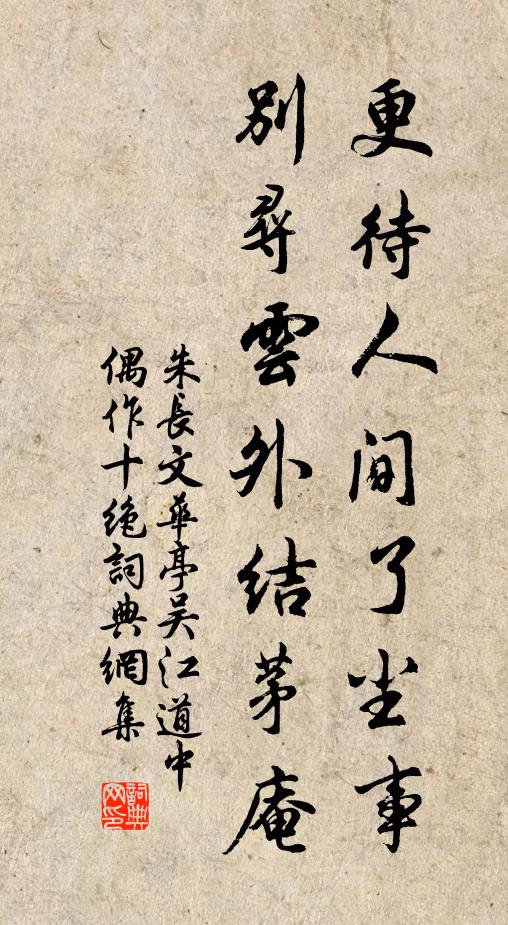 更待人间了尘事
別尋雲外结茅庵
朱長文華亭吴江道中
偶作十绝詞典網集
詞典网印